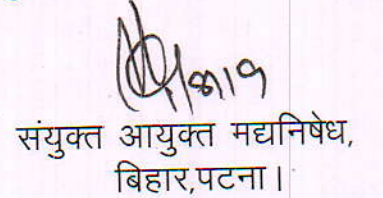 संयुक्त आयुक्त मद्यनिषेध,
बिहार,पटना।